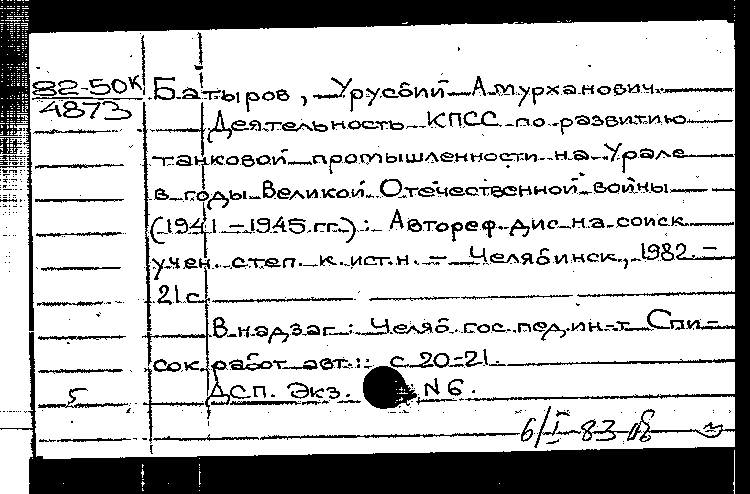 82-50к Батыров, Урусбий Амурханович.
4873 Деятельность КПСС по развитию
танковой промышленности на Урале
в годы Великой Отечественной войны
(1941-1945 гг.): Автореф. дис. на соиск.
учен. степ. к. ист. н. - Челябинск, 1982. -
21 с.
В надзаг.: Челяб. гос. пед. ин-т. Спи-
сок работ авт.: с 20-21.
5 ДСП. Экз. N 6.
6/I-83